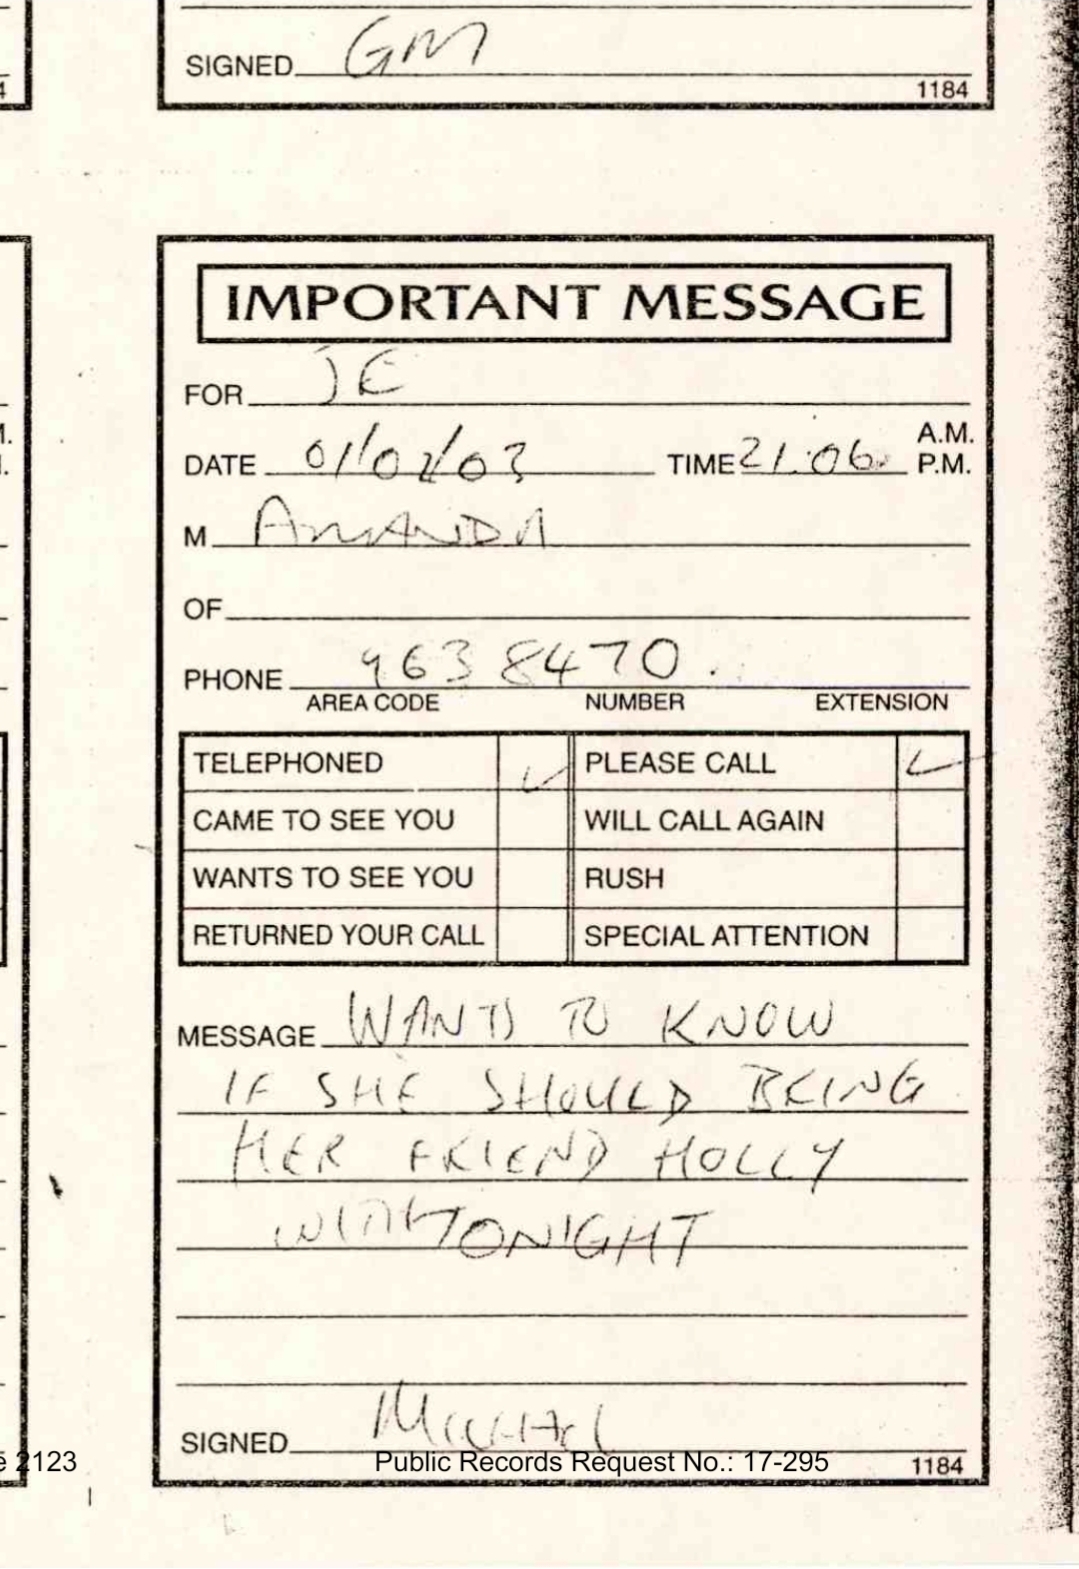 SIGNED GM
1184
IMPORTANT MESSAGE
FOR JE
A.M.
DATE 01/02/03 TIME 21:06 P.M.
M AMANDA
OF
PHONE 963 8470.
AREA CODE NUMBER EXTENSION
TELEPHONED ✓ PLEASE CALL ✓
CAME TO SEE YOU WILL CALL AGAIN
WANTS TO SEE YOU RUSH
RETURNED YOUR CALL SPECIAL ATTENTION
MESSAGE WANTS TO KNOW
IF SHE SHOULD BRING
HER FRIEND HOLLY
WITH TONIGHT
SIGNED MICHAEL
2123 Public Records Request No.: 17-295 1184